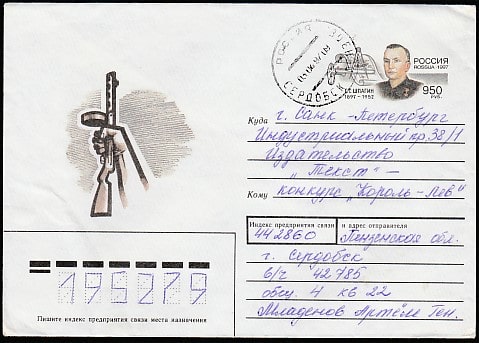 РОССИЯ
СЕРДОБСК
РОССИЯ
ROSSIJA 1997
950
РУБ.
Г.С. ШПАГИН
1897 - 1952
Куда г. Санк-Петербург
Индустриальний пр. 38/1
Издательство
„Текст" —
Кому конкурс „Король-Лев"
Индекс предприятия связи и адрес отправителя
442860 Пензенская обл.
г. Сердобск
в/ч 42785
общ. 4 кв 22
Младенов Артём Ген.
195279
Пишите индекс предприятия связи места назначения